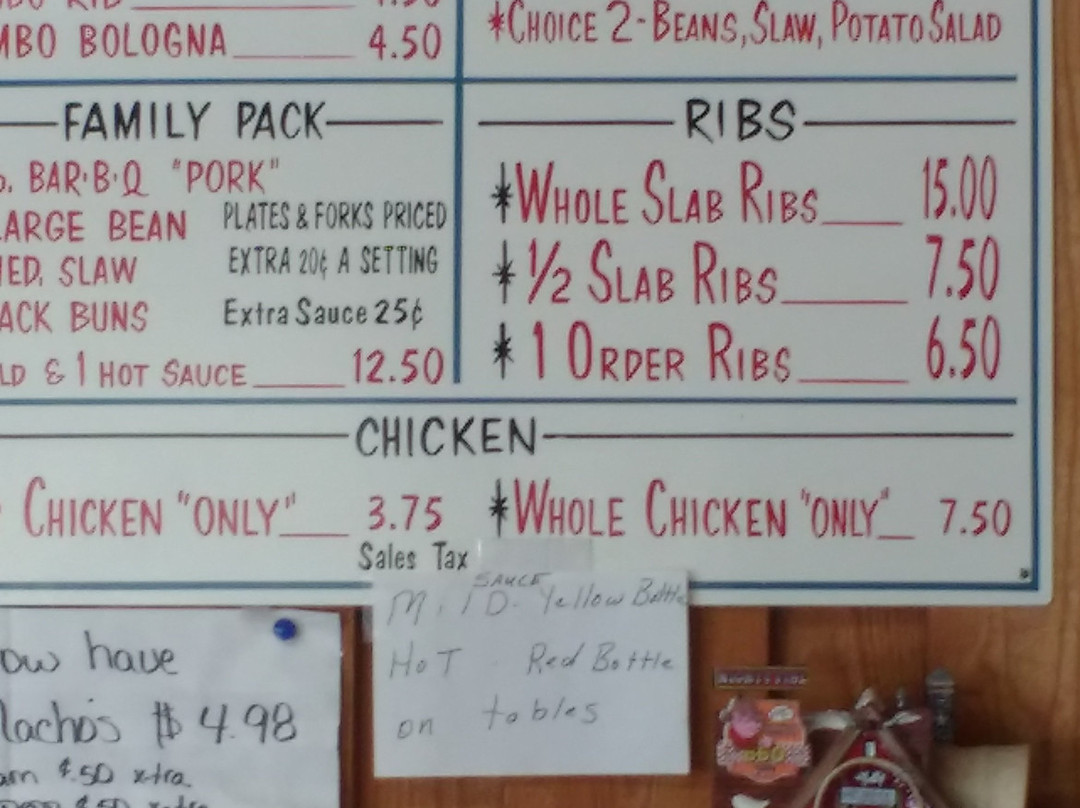 BOLOGNA 4.50
*CHOICE 2-BEANS, SLAW, POTATO SALAD
FAMILY PACK
BAR·B·Q "PORK"
BEAN
SLAW
BUNS
& 1 HOT SAUCE 12.50
PLATES & FORKS PRICED
EXTRA 20¢ A SETTING
Extra Sauce 25¢
RIBS
*WHOLE SLAB RIBS 15.00
*1/2 SLAB RIBS 7.50
*1 ORDER RIBS 6.50
CHICKEN
CHICKEN "ONLY" 3.75
*WHOLE CHICKEN "ONLY" 7.50
Sales Tax
SAUCE
MILD - Yellow Bottle
HOT - Red Bottle
on tables
have
$4.98
$.50 xtra